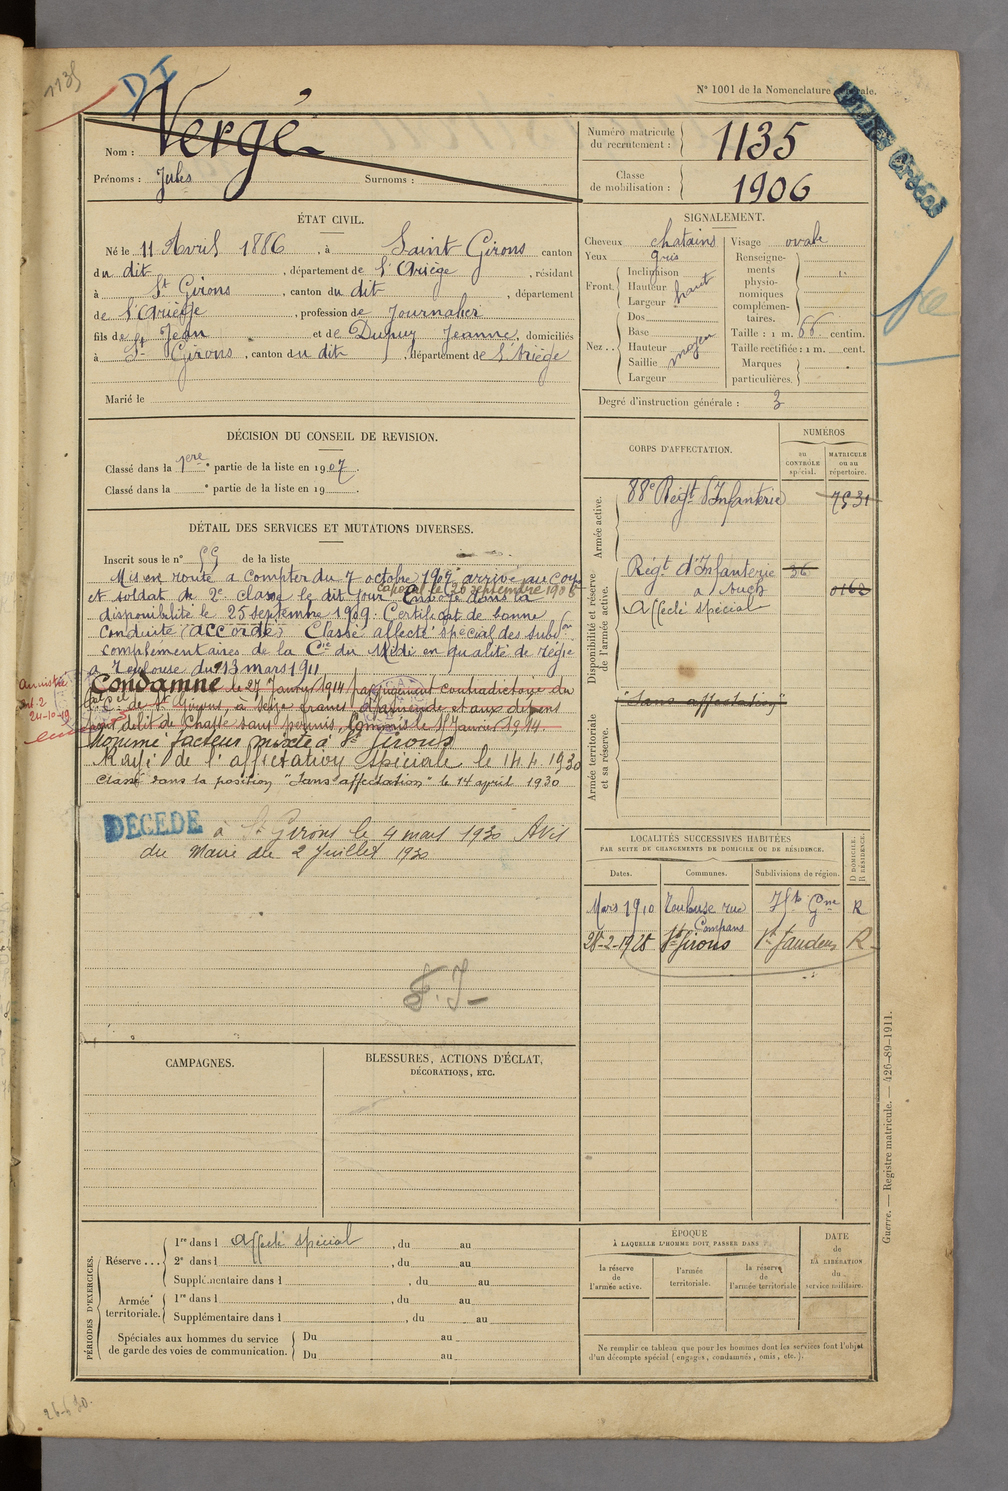 1135
DI
N° 1001 de la Nomenclature générale.
Nom : Vergé
Prénoms : Jules Surnoms :
Numéro matricule du recrutement : 1135
Classe de mobilisation : 1906
ÉTAT CIVIL.
Né le 11 Avril 1886, à Saint Girons canton
du dit, département de l'Ariège, résidant
à St Girons, canton du dit, département
de l'Ariège, profession de Journalier
fils de Jean et de Dupuy Jeanne, domiciliés
à St Girons, canton du dit, département de l'Ariège
Marié le
SIGNALEMENT.
Cheveux chatains Visage ovale
Yeux gris
Front. Inclinaison
Hauteur
Largeur haut
Nez.. Dos
Base
Hauteur
Saillie moyen
Largeur
Renseignements physionomiques complémentaires.
Taille : 1 m. 66 centim.
Taille rectifiée : 1 m. cent.
Marques particulières.
Degré d'instruction générale : 3
DÉCISION DU CONSEIL DE REVISION.
Classé dans la 1ere partie de la liste en 1907.
Classé dans la ° partie de la liste en 19 .
CORPS D'AFFECTATION.
NUMÉROS
au CONTRÔLE spécial.
MATRICULE ou au répertoire.
Armée active.
88e Régt d'Infanterie
Disponibilité et réserve de l'armée active.
Régt d'Infanterie 36
à Auch 0162
Affecté spécial
Armée territoriale et sa réserve.
"Sans affectation"
DÉTAIL DES SERVICES ET MUTATIONS DIVERSES.
Inscrit sous le n° 59 de la liste
Mis en route à compter du 7 octobre 1907 arrivé au corps
et soldat de 2e classe le dit jour Caporal le 26 septembre 1908 Envoyé dans la
disponibilité le 25 septembre 1909. Certificat de bonne
conduite (accordé) Classé affecté spécial des subdons
complémentaires de la Cie du Midi en qualité de
à Toulouse du 13 mars 1911
Condamné le 27 Janvier 1914 par jugement contradictoire du
de St Girons, à Seize francs d'amende et aux dépens
pour délit de Chasse sans permis, Commis le Janvier 1914.
Nommé facteur mixte à St Girons
Rayé de l'affectation spéciale le 14.4.1930
Classé dans la position "Sans affectation" le 14 april 1930
Amnistié
24-10-19
DÉCÉDÉ à St Girons le 4 mars 1930 Avis
du Maire du 2 Juillet 1930
F.J-
LOCALITÉS SUCCESSIVES HABITÉES
PAR SUITE DE CHANGEMENTS DE DOMICILE OU DE RÉSIDENCE.
Dates. Communes. Subdivisions de région. D DOMICILE. R RÉSIDENCE.
Mars 1910 Toulouse rue Compans Hte Gne R
28-2-1928 St Girons St Gaudens R
CAMPAGNES.
BLESSURES, ACTIONS D'ÉCLAT,
DÉCORATIONS, ETC.
PÉRIODES D'EXERCICES.
Réserve... 1re dans l Affecté spécial, du au
2e dans l , du au
Supplémentaire dans l , du au
Armée territoriale. 1re dans l , du au
Supplémentaire dans l , du au
Spéciales aux hommes du service de garde des voies de communication. Du au
Du au
ÉPOQUE
À LAQUELLE L'HOMME DOIT PASSER DANS
la réserve de l'armée active.
l'armée territoriale.
la réserve de l'armée territoriale
DATE de LA LIBÉRATION du service militaire.
Ne remplir ce tableau que pour les hommes dont les services font l'objet
d'un décompte spécial (engagés, condamnés, omis, etc.).
Guerre. — Registre matricule. — 426-89-1911.